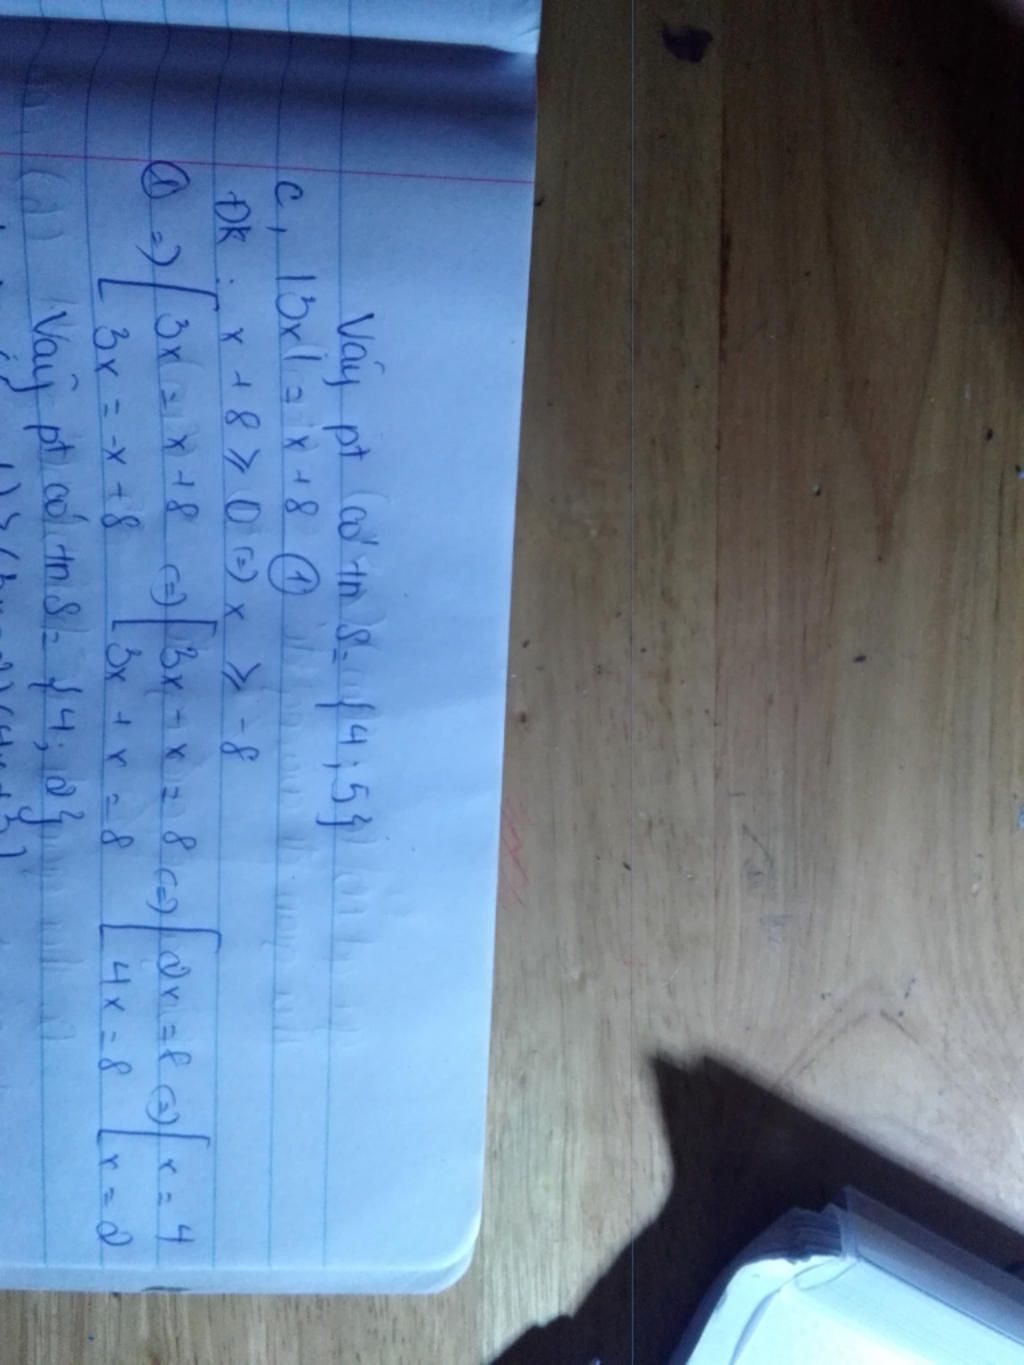 Vậy pt có tn S = {4; 5}
c, |3x| = x + 8 ①
ĐK : x + 8 ≥ 0 (=) x ≥ -8
① =) [ 3x = x + 8 (=) [ 3x - x = 8 (=) [ 2x = 8 (=) [ x = 4
[ 3x = -x + 8 [ 3x + x = 8 [ 4x = 8 [ x = 2
Vậy pt có tn S = {4; 2}